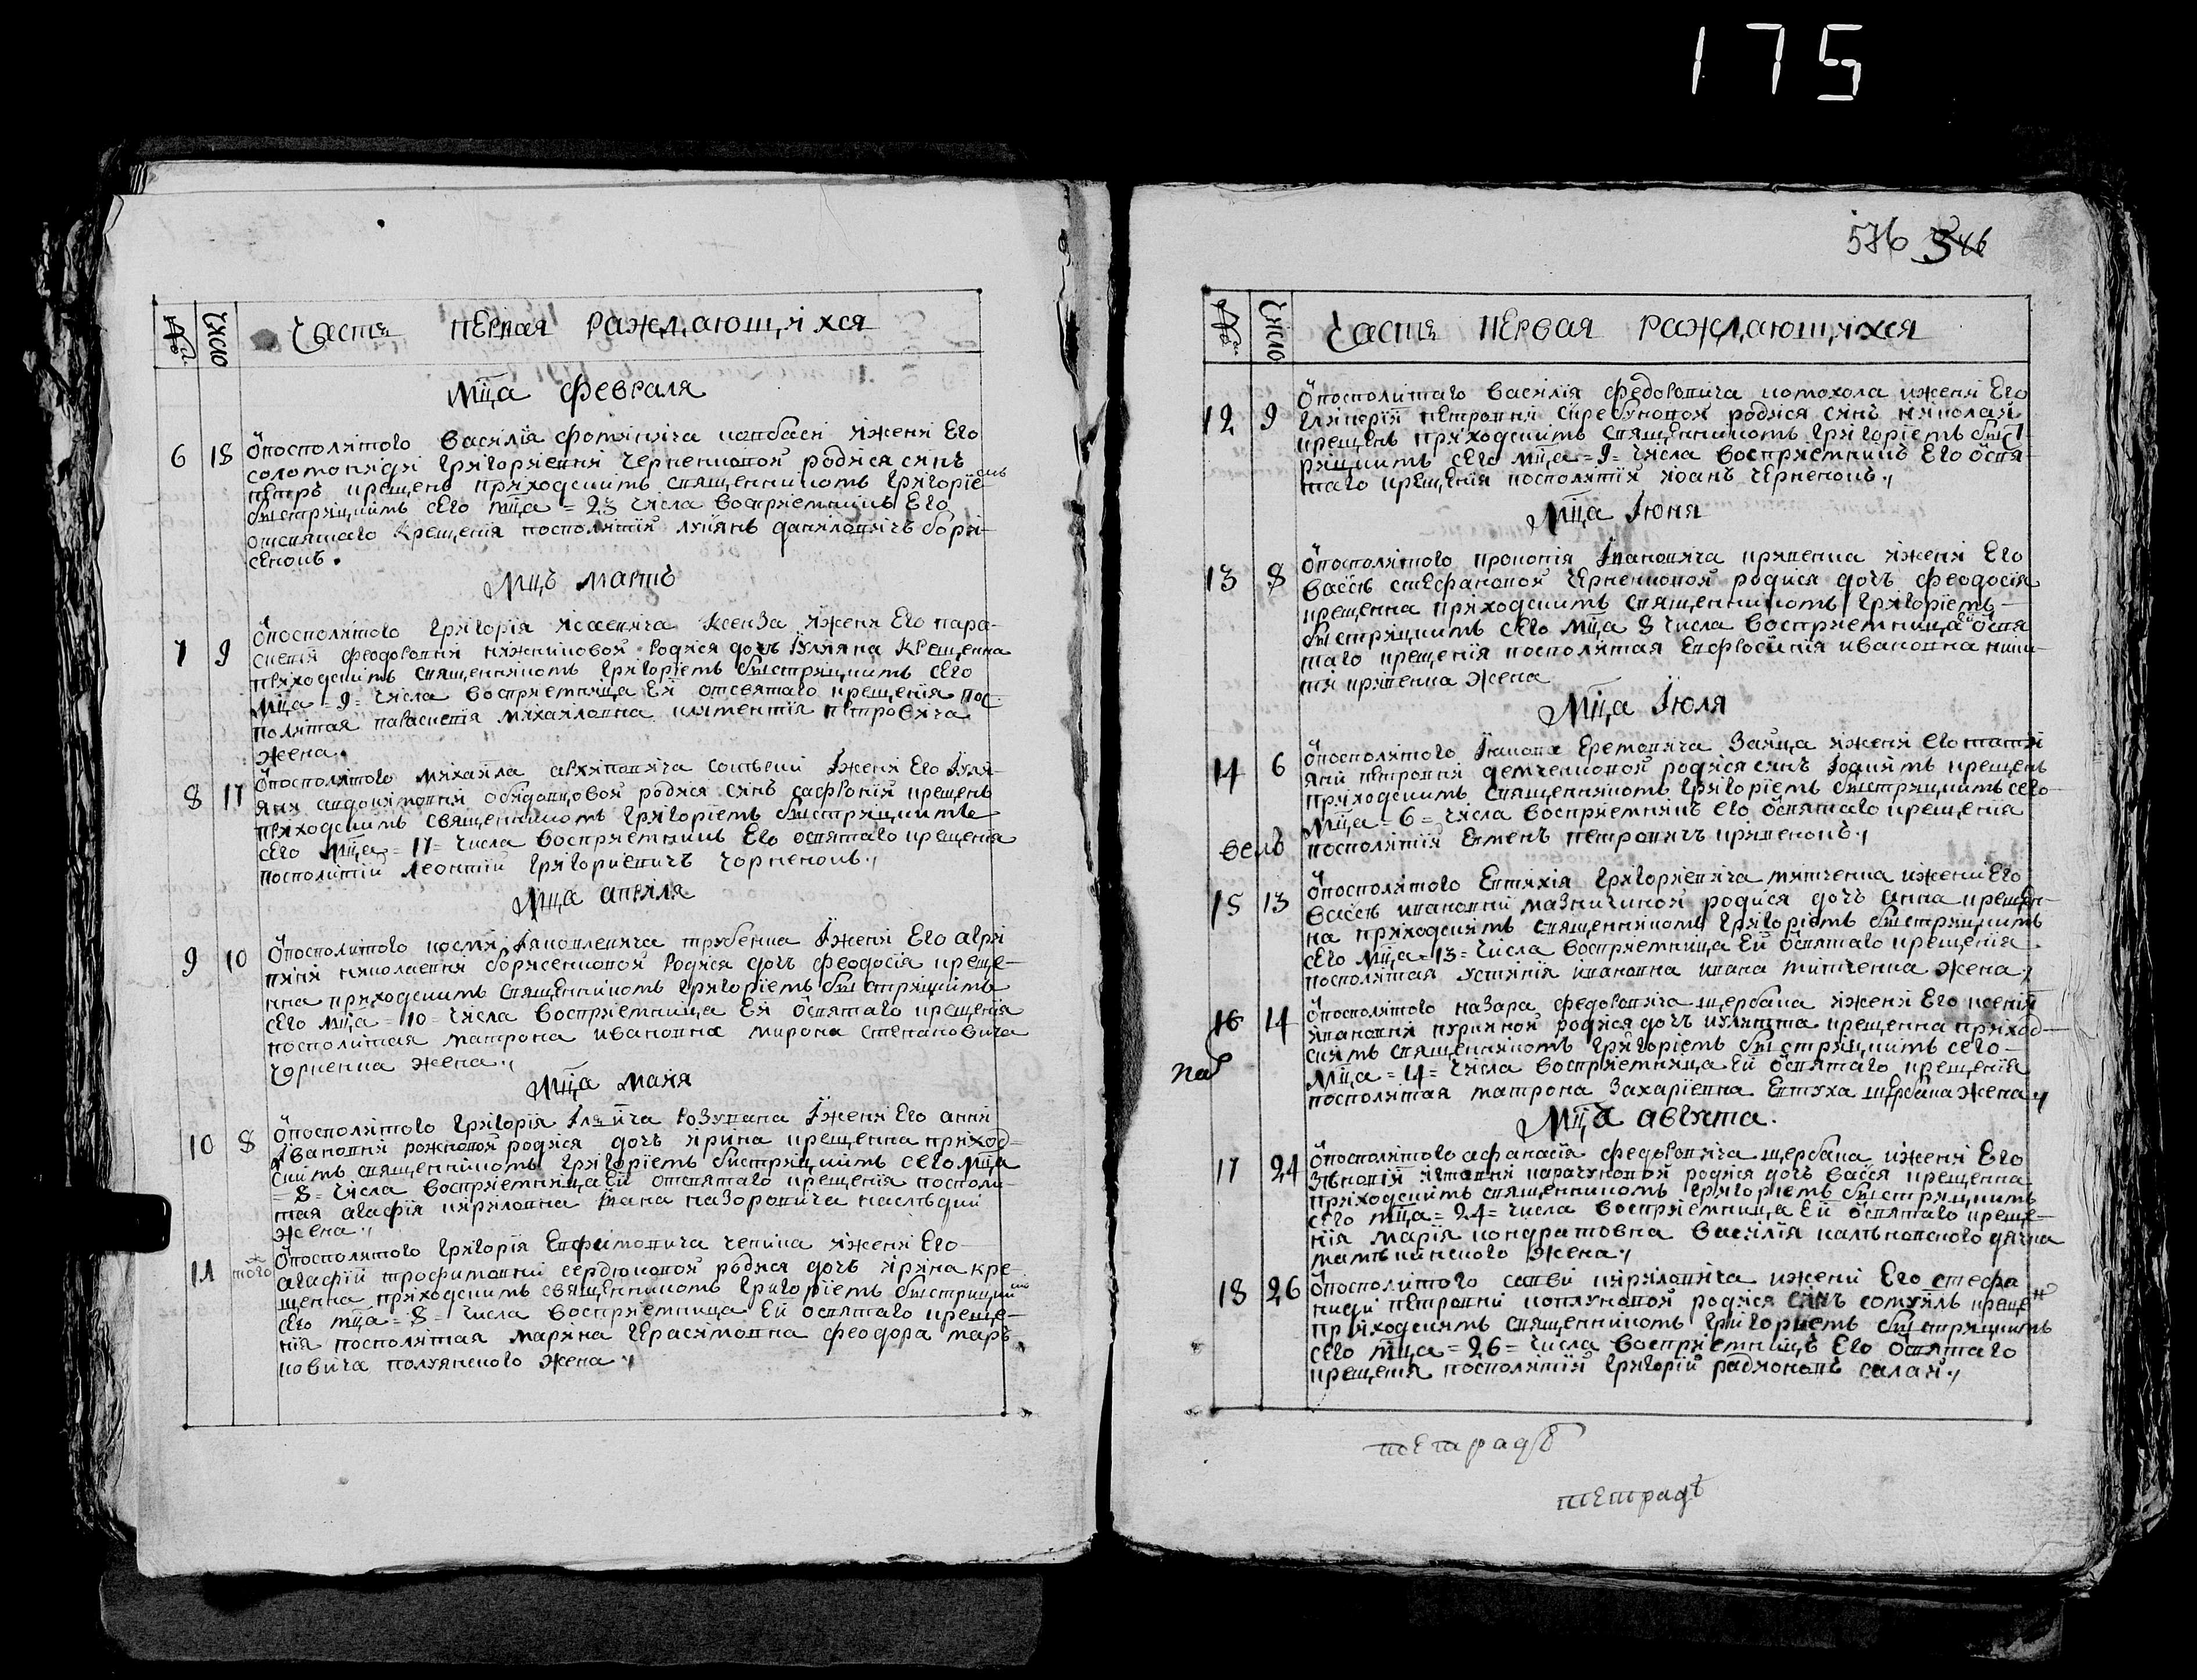 175
576 546
№ Число Часть первая раждающихся
Мца февраля
6 18 Ў посполитого Василія Фотиевича ковбаси и жени Его
соломониди григориевни Черненковой родися синъ
петръ крещенъ приходскимъ священникомъ григоріемъ
бистрицкимъ сего мца = 23 числа восприемникъ Его
отсвятаго крещения посполитий лукянъ даниловичъ бори-
сенокъ.
Мцъ мартъ
7 9 Ў посполитого григория ксенза и жени Его пара-
скевии феодоровни родися дочъ Іулияна крещенна
приходскимъ священникомъ григоріемъ бистрицкимъ сего
Мца = 9 = числа восприемница Ей отсвятаго крещения пос-
политая параскевия михайловна климентия петровича
жена.
8 17 Ў посполитого михаила архиповича и жени Его Іули-
яни родися синъ сафроний крещенъ
приходскимъ священникомъ григоріемъ бистрицкимъ
сего мца = 17 = числа восприемникъ Его освятаго крещения
посполитий леонтий григориевичъ Чорненокъ.
Мца априля
9 10 Ў посполитого косми Іаковлевича трубенка и жени Его агри
пини николаевни борисенковой родися дочъ феодосія креще-
нна приходскимъ священникомъ григоріемъ бистрицкимъ
сего мца = 10 = числа восприемница Ей ўсвятаго крещения
посполитая матрона ивановна мирона степановича
чорненка жена.
Мца маия
10 8 Ў посполитого григория Іллича розупана и жени Его анни
Ивановни рожковой родися дочъ ирина крещенна приход-
скимъ священникомъ григоріемъ бистрицкимъ сего мца
= 8 = числа восприемница Ей отсвятаго крещения посполи-
тая агафия кириловна Ивана назоровича
жена.
11 того Ў посполитого григория Евфимовича чепика и жени Его
агафии трофимовни сердюковой родися дочъ ирина кре-
щенна приходскимъ священникомъ григоріемъ бистрицким
сего мца = 8 = числа восприемница Ей освятаго креще-
ния посполитая марина герасимовна феодора мар-
ковича полуянского жена.
№ Число Часть первая раждающихся
12 9 Ў посполитаго василия федоровича и жени Его
гликерии петровни родися синъ николай
крещенъ приходскимъ священникомъ григоріемъ бист-
рицкимъ сего мца = 9 = числа восприемникъ Его ўсвя-
таго крещения посполитий иоанъ черненокъ.
Мца Іюня
13 8 Ў посполитого прокопия Ивановича кривенка и жени Его
васси стефановой Черненковой родися дочъ феодосія
крещенна приходскимъ священникомъ григоріемъ
бистрицкимъ сего мца 8 числа восприемница ўсвя
таго крещения посполитая Евфросиния ивановна ники-
ти кривенка жена
Мца Іюля
14 6 Ў посполитого Іакова Еремовича Заяца и жени его тати
яни петровни демченковой родися синъ Іоакимъ крещенъ
приходскимъ священникомъ григоріемъ бистрицкимъ сего
Мца = 6 = числа восприемникъ его ўсвятаго крещения
посполитий петровичъ кривенокъ.
15 13 Ў посполитого Евтихия григориевича митченка и жени Его
васси ивановни мазничиной родися дочъ анна крещен-
на приходскимъ священникомъ григоріемъ бистрицкимъ
сего мца = 13 = числа восприемница Ей ўсвятаго крещения
посполитая устиния ивановна ивана митченка жена.
16 14 Ў посполитого назара федоровича щербака и жени Его ксении
ивановни родися дочъ крещенна приход-
скимъ священникомъ григоріемъ бистрицкимъ сего
Мца = 14 = числа восприемница Ей ўсвятаго крещения
посполитая матрона Захариевна Евтуха щербака жена.
Мца августа.
17 24 Ў посполитого афанасія федоровича щербака и жени Его
родися дочъ васся крещенна
приходскимъ священникомъ григоріемъ бистрицкимъ
сего мца = 24 = числа восприемница Ей ўсвятаго креще-
ния мария кондратовна василия дячка
жена.
18 26 Ў посполитого савви кириловича и жени Его стефа
ниди петровни родися синъ крещен
приходскимъ священникомъ григориемъ бистрицкимъ
сего мца = 26 = числа восприемникъ Его ўсвятаго
крещения посполитий григорий салай.
тетрадь